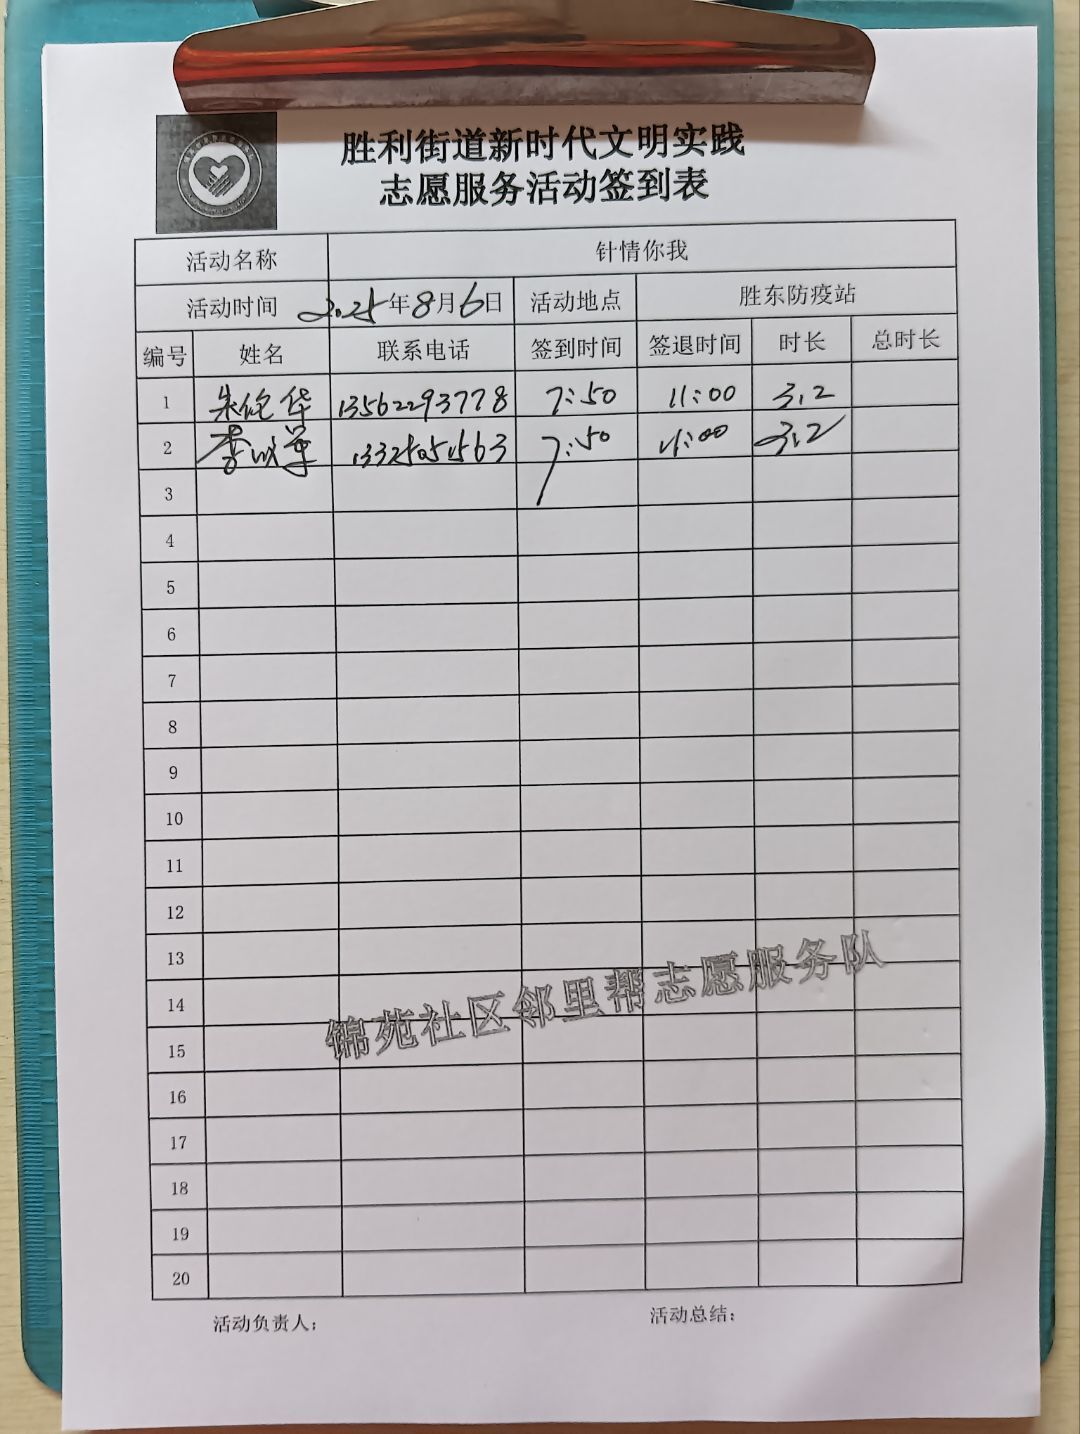 胜利街道新时代文明实践
志愿服务活动签到表
活动名称 针情你我
活动时间 2025年8月6日 活动地点 胜东防疫站
编号 姓名 联系电话 签到时间 签退时间 时长 总时长
1 朱 华 13562293778 7:50 11:00 3.2
2 李 7:50 11:00 3.2
3
4
5
6
7
8
9
10
11
12
13
14
锦苑社区邻里帮志愿服务队
15
16
17
18
19
20
活动负责人： 活动总结：